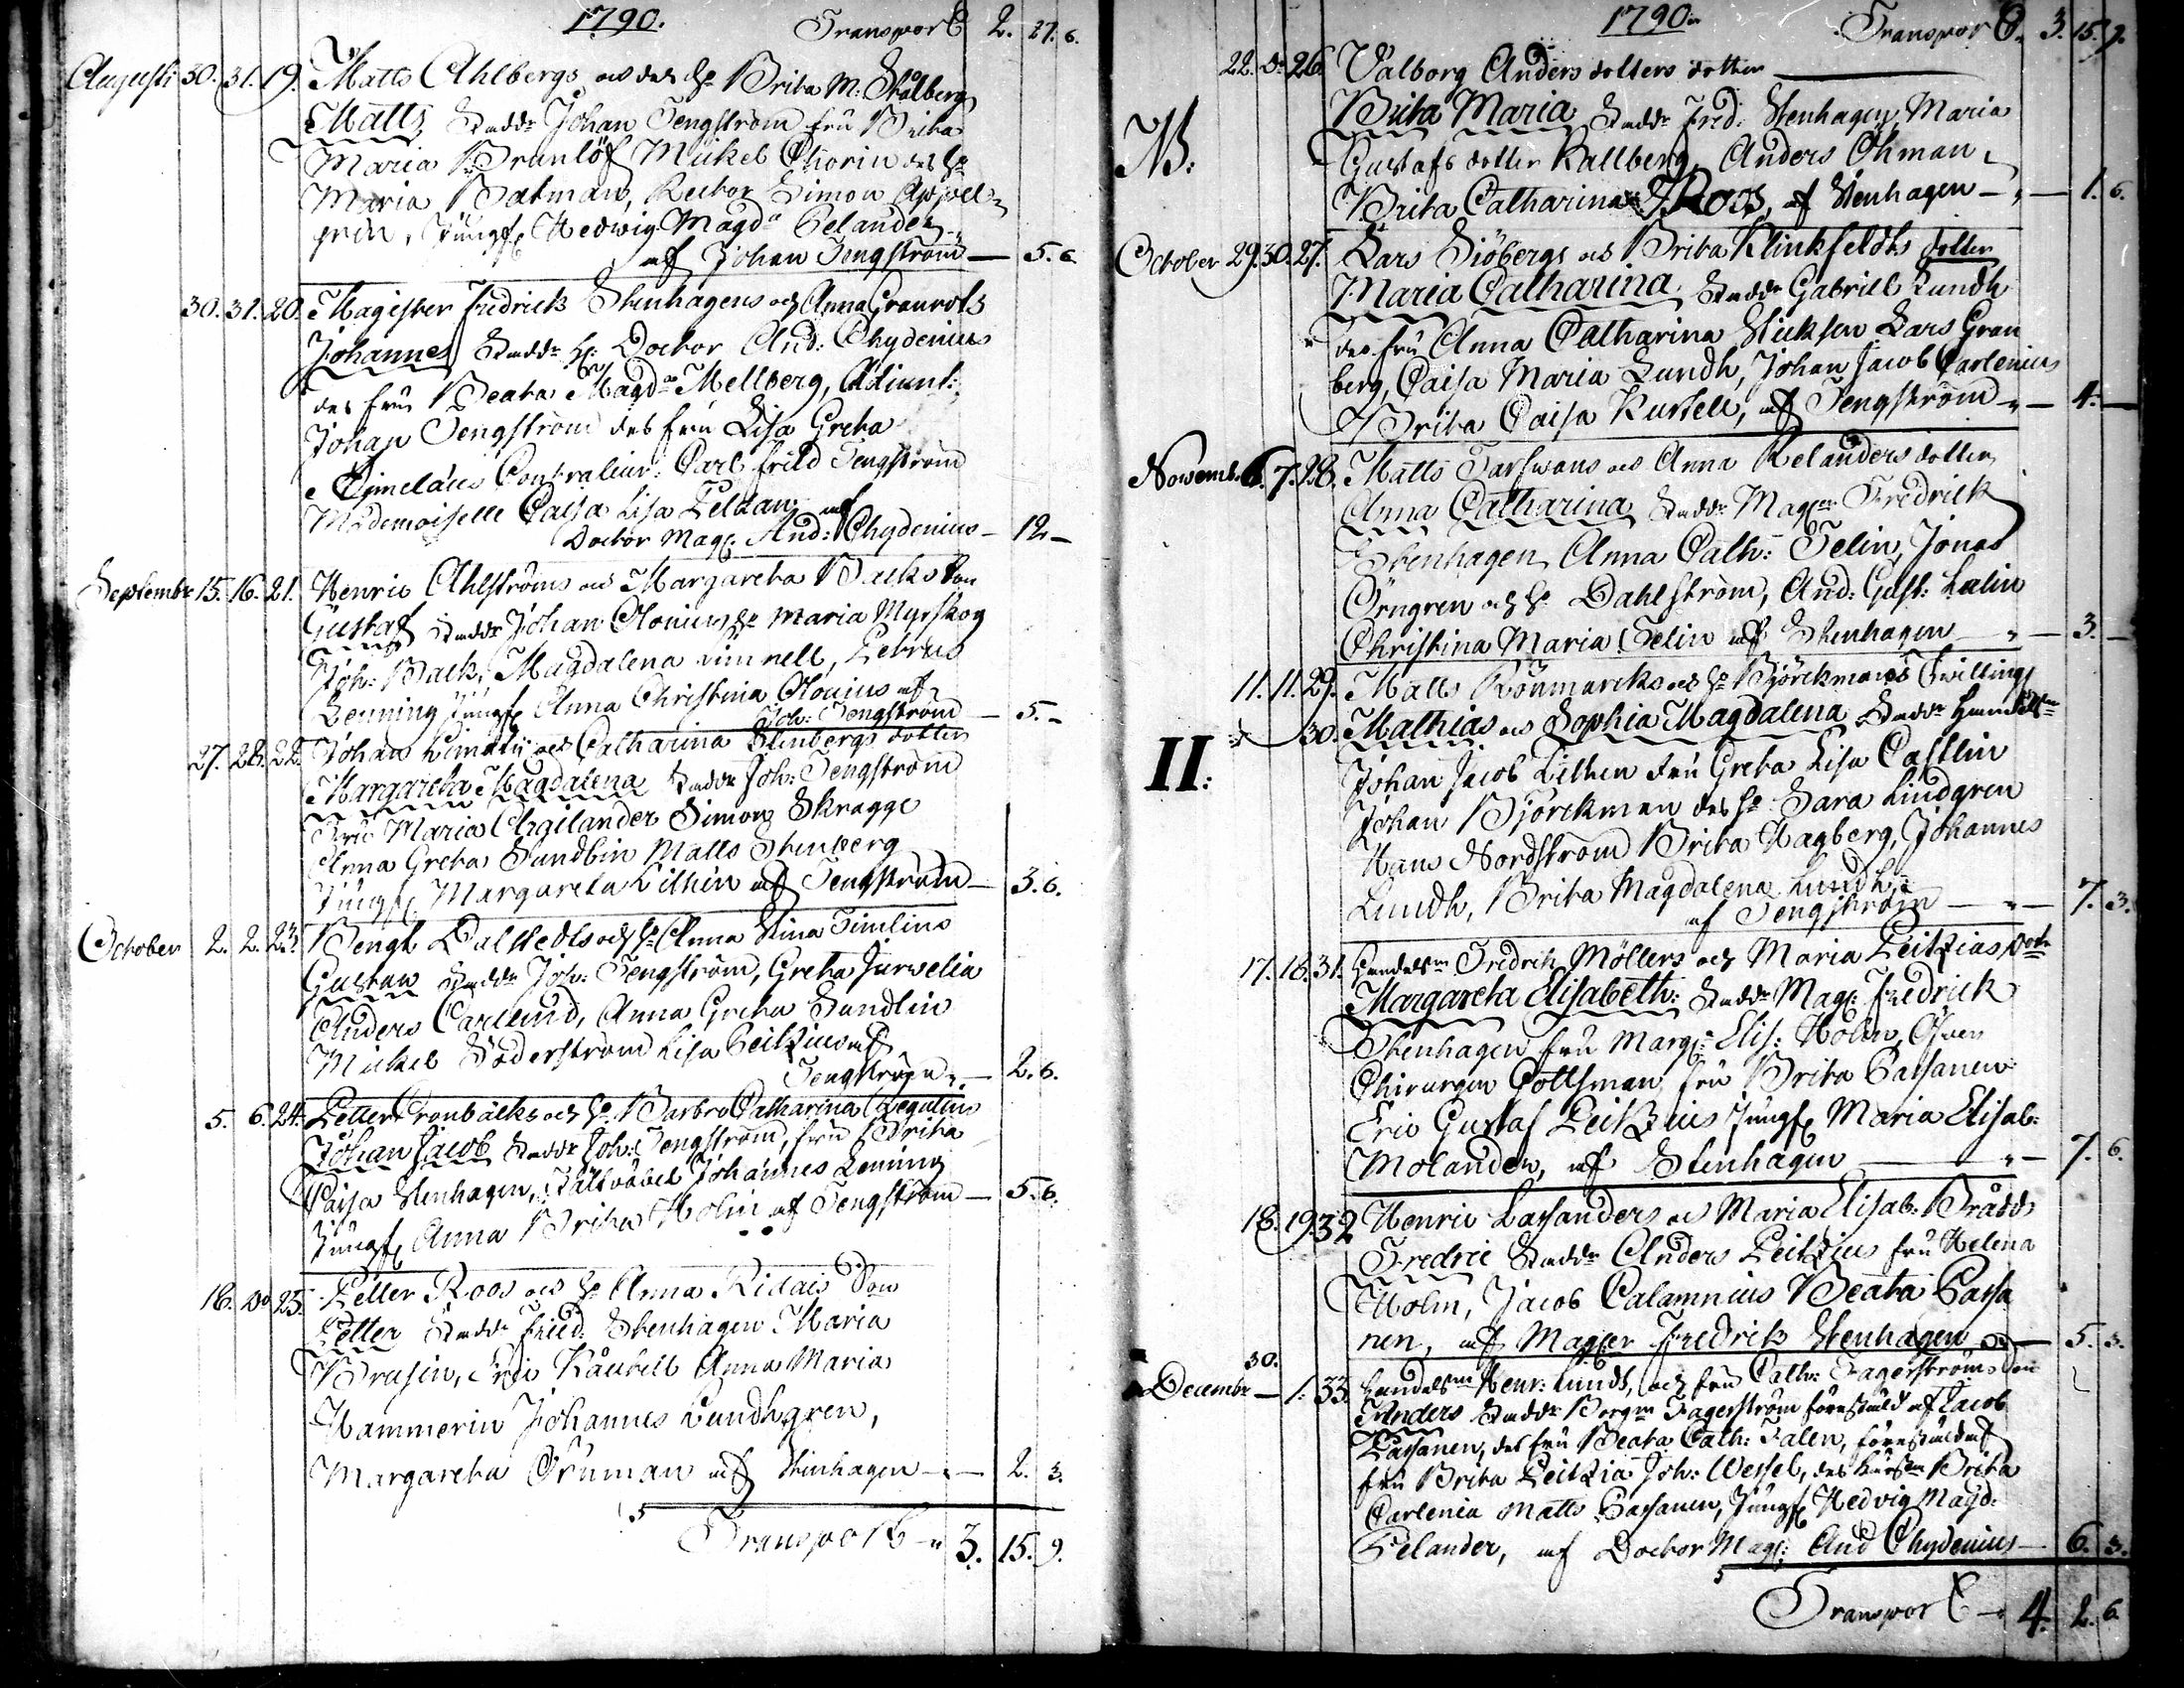 1790. Transport 2. 27. 6.
Augusti 30. 31. 19. Matts Ahlbergs och des H. Brita M. Stålberg
Matts Stadde Johan Tengström fru Brita
Maria Brunlöf Mickel Thorin des H.
Maria Batman, Rector Simon Appel-
gren, Jungf. Hedwig Magda Gelander
af Johan Tengström — 5. 6.
30. 31. 20. Magister Fredrick Stenhagens och Anna Granrots
Johannes Stadde H. Doctor And: Chydenius
des fru Beata Magda Mellberg, Adiunct:
Johan Tengström des fru Lisa Greta
Contraleur: Carl Frild Tengström
Mademoiselle Caisa Lisa Feldan af
Doctor Mag. And: Chydenius — 12 —
Septembr 15. 16. 21. Henric Ahlströms och Margareta Backs Son
Gustaf Stadde Johan Clonius H. Maria Myrskog
Joh: Back, Magdalena Limnell, Petrus
Lenning Jungf. Anna Christina Clonius af
Joh: Tengström — 5. -
27. 28. 22. Johan Limatii och Catharina Stenbergs dotter
Margareta Magdalena Stadde Joh: Tengström
Fru Maria Argilander Simon Skragge
Anna Greta Sundlin Matts Stenberg
Jungf. Margareta Lithén af Tengström — 3. 6.
October 2. 2. 23. Bengt Dalstedts och H. Anna Stina Timlins
Gustaw Stadde Joh: Tengström, Greta Jurvelia
Anders Carlund, Anna Greta Sundlin
Mickel Söderström Lisa Peitzius af
Tengström — 2. 6.
5. 6. 24. Petter Cronbäcks och H. Barbro Catharina Regulins
Johan Jacob Stadde Joh: Tengström, fru Brita
Caisa Stenhagen, Fältväbel Johannes Lening
Jungf. Anna Brita Holm af Tengström — 5. 6.
18. Do 25. Petter Roos och H. Anna Ridais Son
Petter Stadde Fried. Stenhagen Maria
Brusin, Eric Kåurell Anna Maria
Hammerin Johannes Lundhgren,
Margareta Öruman af Stenhagen — 2. 3.
Transport 3. 15. 9.
1790. Transport. 3. 15. 9.
22. D. 26. Valborg Andersdotters dotter
Brita Maria Stadde Fred: Stenhagen, Maria
NB: Gustafsdotter Kallberg, Anders Öhman,
Brita Catharina Roos, af Stenhagen — 1. 6.
October 29. 30. 27. Lars Siöbergs och Brita Klinkfeldts dotter
Maria Catharina Stadde Gabriel Lundh
des fru Anna Catharina Stieksen Lars Gran
berg, Caisa Maria Lundh, Johan Jacob Carlenius
Brita Caisa Kurtell, af Tengström — 4. —
Novemb. 6. 7. 28. Matts Farswans och Anna Relanders dotter
Anna Catharina Stadde Magr Fredrick
Stenhagen Anna Cath: Telin, Jonas
Örngren och H. Dahlström, And: Gust: Lalin
Christina Maria Telin af Stenhagen — 3. —
11. 11. 29. Matts Rönmarcks och H. Björckmans Twillings
30. Mathias och Sophia Magdalena Stadde Handelsm
II: Johan Jacob Lithen fru Greta Lisa Castlin
Johan Björckman des H. Sara Lindgren
Hans Nordström Brita Hagberg, Johannes
Lundh, Brita Magdalena Lundh,
af Tengström — 7. 3.
17. 18. 31. Handelsm Fredrik Möllers och Maria Peitzias Dotr
Margareta Elisabeth: Stadde Mag. Fredrick
Stenhagen, fru Marg. Elis: Holm, Öfver
Chirurgen Gottsman fru Brita Passanen
Eric Gustaf Peitzius Jungf. Maria Elisab:
Molander, af Stenhagen — 7. 6.
18. 19. 32 Henric Lassanders och Maria Elisab: Brådds
Fredric Stadde Anders Peitzius fru Helena
Holm, Jacob Calamnius Beata Passa
nen, af Magister Fredrik Stenhagen — 5. 3.
30.
Decembr — 1. 33. Handelsm Henr: Lunds, och fru Cath: Fagerströms Son
Anders Stadde Borgm Fagerström föreståld af Jacob
Passanen, des fru Beata Cath: Falen, föreståld af
fru Brita Peitzia Joh: Wessel, des Hustru Brita
Carlenia Matts Passanen, Jungf. Hedvig Magd:
Gelander, af Doctor Mag: And Chydenius — 6. 3.
Transport 4. 2. 6.